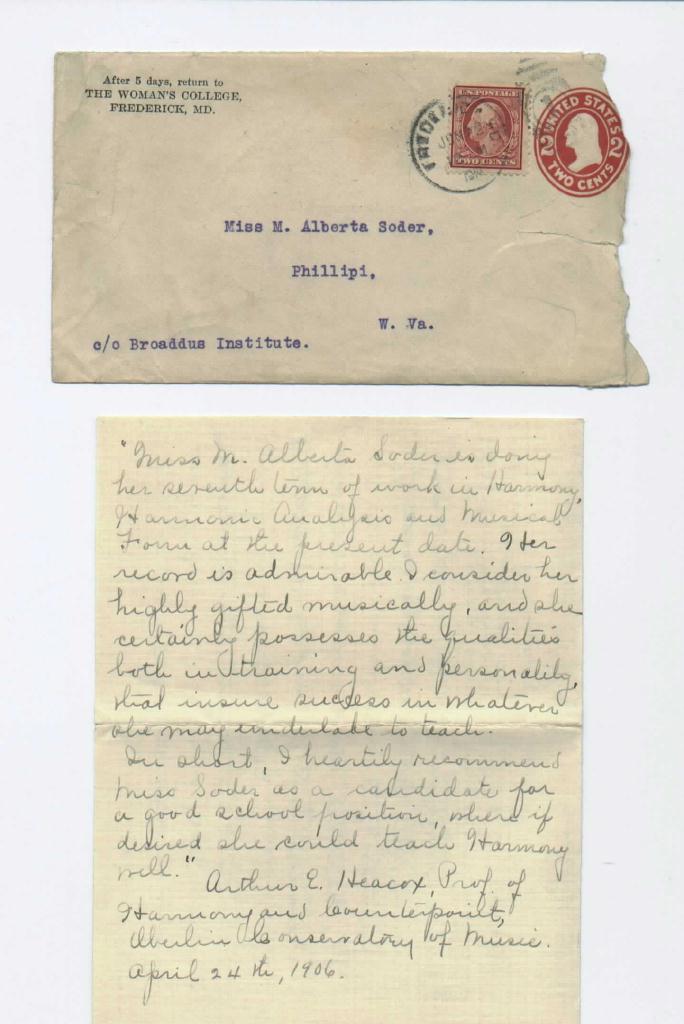 After 5 days, return to
THE WOMAN'S COLLEGE,
FREDERICK, MD.
U.S. POSTAGE
TWO CENTS
UNITED STATES
2 2
TWO CENTS
Miss M. Alberta Soder,
Phillipi,
W. Va.
c/o Broaddus Institute.
"Miss M. Alberta Soder is doing
her seventh term of work in Harmony,
Harmonic Analysis and Musical
Form at the present date. Her
record is admirable. I consider her
highly gifted musically, and she
certainly possesses the qualities
both in training and personality,
that insure success in whatever
she may undertake to teach.
In short, I heartily recommend
Miss Soder as a candidate for
a good school position, where if
desired she could teach Harmony
well."
Arthur E. Heacox, Prof. of
Harmony and Counterpoint,
Oberlin Conservatory of Music.
April 24th, 1906.